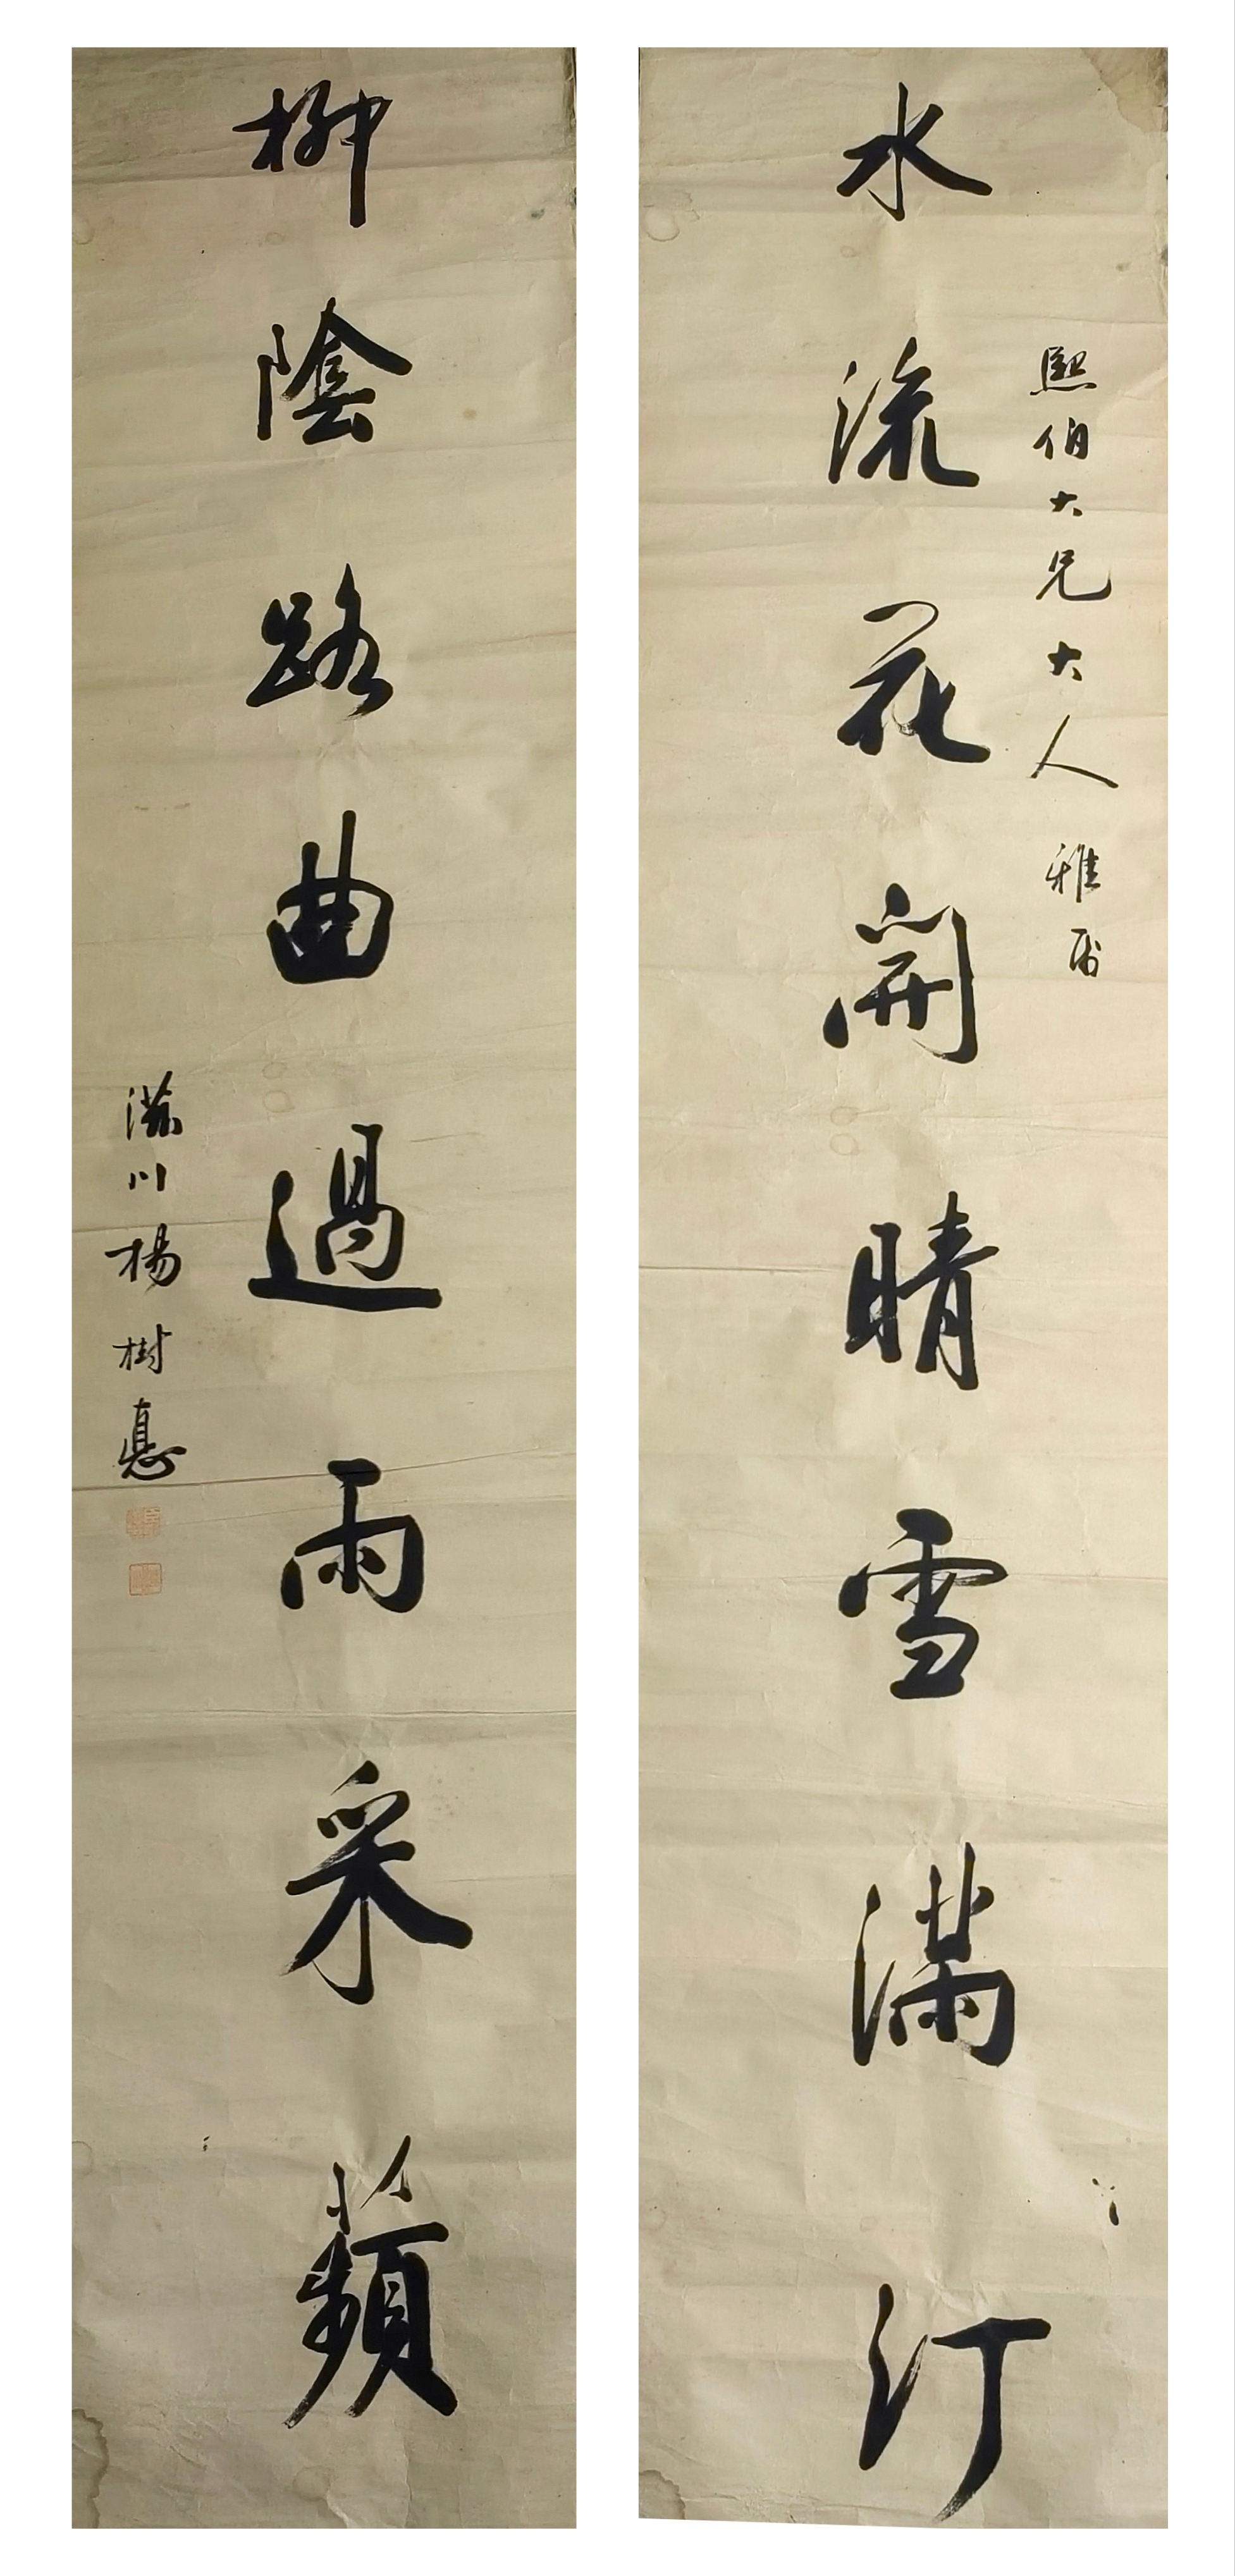 熙伯大兄大人雅屬
水流花開晴雪滿汀
柳陰路曲過雨采蘋
滋川楊樹惪